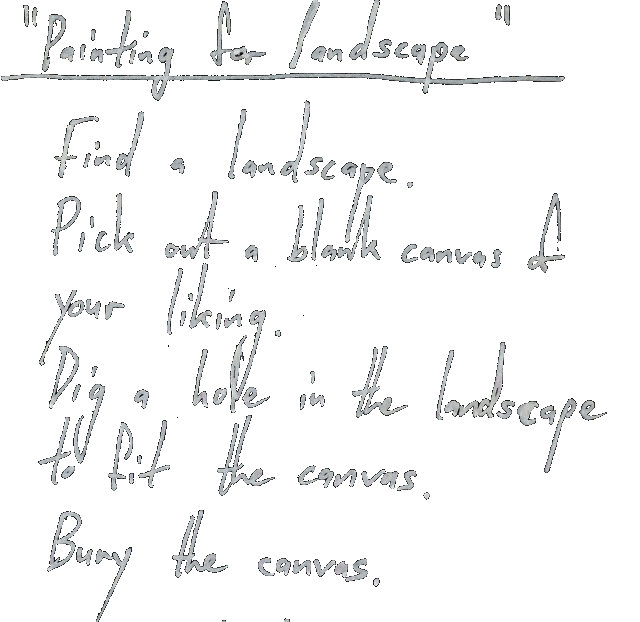 "Painting for landscape"
Find a landscape.
Pick out a blank canvas of
your liking.
Dig a hole in the landscape
to fit the canvas.
Bury the canvas.